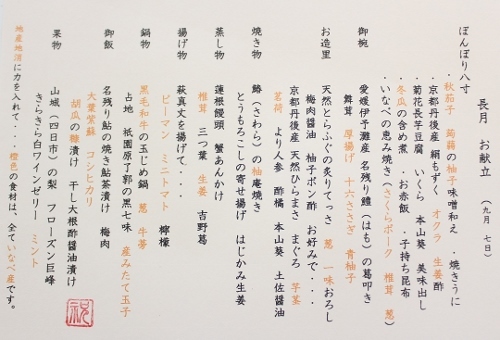 長月　お献立　（九月　七日）
ぼんぼり八寸
・秋茄子　蒟蒻の柚子味噌和え　・焼きうに
・京都丹後産　絹もずく　オクラ　生姜酢
・菊花長芋豆腐　いくら　本山葵　美味出し
・冬瓜の含め煮　・お赤飯　・子持ち昆布
・いなべの恵み焼き（さくらポーク　椎茸　葱）
御椀　愛媛伊予灘産　名残り鱧（はも）の葛叩き
舞茸　厚揚げ　十六ささぎ　青柚子
お造里　天然とらふぐの炙りてっさ　葱　一味おろし
梅肉醤油　柚子ポン酢　お好みで・・・
京都丹後産　天然ひらまさ　まぐろ　芋茎
茗荷　より人参　酢橘　本山葵　土佐醤油
焼き物　鰆（さわら）の柚庵焼き
とうもろこしの寄せ揚げ　はじかみ生姜
蒸し物　蓮根饅頭　蟹あんかけ
椎茸　三つ葉　生姜　吉野葛
揚げ物　萩真丈を揚げて・・・
ピーマン　ミニトマト　檸檬
鍋物　黒毛和牛の玉じめ鍋　葱　牛蒡
占地　祇園原了郭の黒七味　産みたて玉子
御飯　名残り鮎の焼き鮎茶漬け　梅肉
大葉紫蘇　コシヒカリ
胡瓜の糠漬け　干し大根酢醤油漬け
果物　山城（四日市）の梨　フローズン巨峰
きらきら白ワインゼリー　ミント
地産地消に力を入れて・・・橙色の食材は、全ていなべ産です。
祝